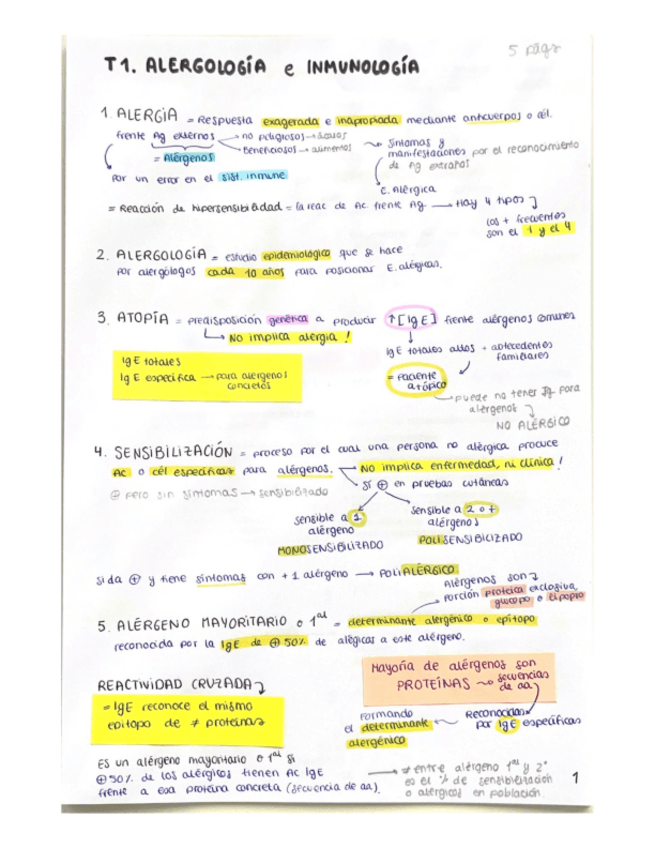 5 págs
T1. ALERGOLOGÍA e INMUNOLOGÍA
1. ALERGIA = Respuesta exagerada e inapropiada mediante anticuerpos o cél.
frente Ag externos → no peligrosos → ácaros
→ Beneficiosos → alimentos
= Alérgenos
Síntomas y
manifestaciones por el reconocimiento
de Ag extraños
Por un error en el sist. inmune
C. Alérgica
= Reacción de hipersensibilidad = la reac de Ac. frente Ag. → Hay 4 tipos
los + frecuentes
son el 1 y el 4
2. ALERGOLOGÍA = estudio epidemiológico que se hace
por alergólogos cada 10 años para posicionar E. alérgicas.
3. ATOPÍA = predisposición genética a producir ↑[IgE] frente alérgenos comunes
→ No implica alergia!
IgE totales
IgE específica → para alergenos
concretos
IgE totales altos + antecedentes
familiares
= Paciente
atópico
puede no tener Ig para
alergenos
NO ALÉRGICO
4. SENSIBILIZACIÓN = proceso por el cual una persona no alérgica produce
Ac o cél específicas para alérgenos. → No implica enfermedad, ni clínica!
⊕ pero sin síntomas → sensibilizado
Sí ⊕ en pruebas cutáneas
sensible a 1
alérgeno
MONOSENSIBILIZADO
sensible a 2 o +
alérgenos
POLISENSIBILIZADO
si da ⊕ y tiene síntomas con + 1 alérgeno → POLIALÉRGICO.
Alérgenos son
porción proteica exclusiva,
glucopo o lipopro
5. ALÉRGENO MAYORITARIO o 1ᵃˡ = determinante alergénico o epítopo
reconocida por la IgE de ⊕ 50% de alégicos a este alérgeno.
Mayoría de alérgenos son
PROTEÍNAS → secuencias
de aa
REACTIVIDAD CRUZADA
= IgE reconoce el mismo
epítopo de ≠ proteínas
Reconocidas
por IgE específicas
Formando
el determinante
alergénico
ES un alérgeno mayoritario o 1ᵃˡ si
⊕ 50% de los alérgicos tienen Ac IgE
frente a esa proteína concreta (secuencia de aa).
→ ≠ entre alérgeno 1ᵃˡ y 2º
es el % de sensibilización
o alérgicos en población.
1